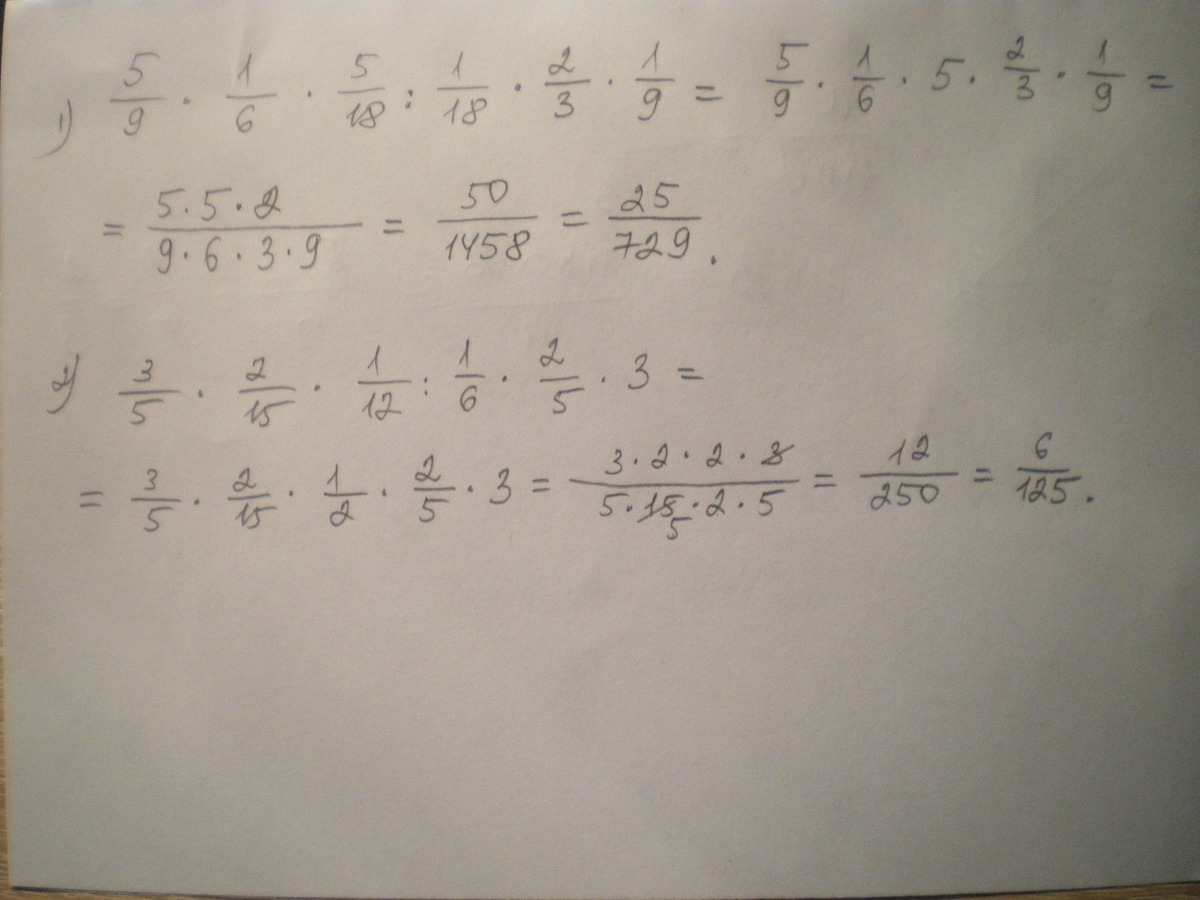 1) 5/9 · 1/6 · 5/18 : 1/18 · 2/3 · 1/9 = 5/9 · 1/6 · 5 · 2/3 · 1/9 =
= 5·5·2/9·6·3·9 = 50/1458 = 25/729.
2) 3/5 · 2/15 · 1/12 : 1/6 · 2/5 · 3 =
= 3/5 · 2/15 · 1/2 · 2/5 · 3 = 3·2·2·3/5·15·2·5 = 12/250 = 6/125.
5